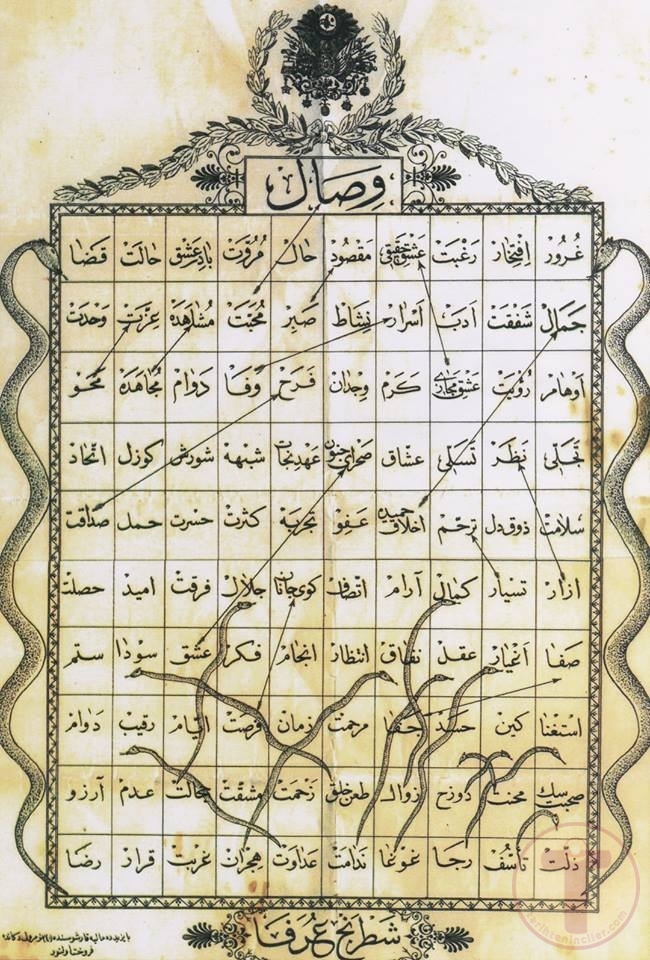 وصال
غرور افتخار رغبت عشق حقیقی مقصود حال مروت بادۀ عشق حالت قضا
جمال شفقت ادب اسرار نشاط صبر محبت مشاهده عزلت وحدت
اوهام رؤیت عشق مجازی کرم وجدان فرح وفا دوام مجاهده محو
تجلی نظر تسلی عشاق صحرای جنون عهد نجات شبهه شورش کوزل اتحاد
سلامت ذوق دل ترحم اخلاق حمیده عفو تجربه کثرت حسرت حمل صداقت
ازار تسیار کمال آرام اتصاف کوی جانان جلال فرقت امید حصلت
صفا اغیار عقل نفاق انتظار انجام فکر عشق سودا ستم
استغنا کین حسد جفا مرحمت زمان فرصت ایام رقیب دوام
صحبت محنت دوزخ زوال طعن خلق زحمت مشقت جهالت عدم آرزو
ذلت تأسف رجا غوغا ندامت عداوت هجران غربت قرار رضا
شطرنج عرفا
tarihteninciler.com